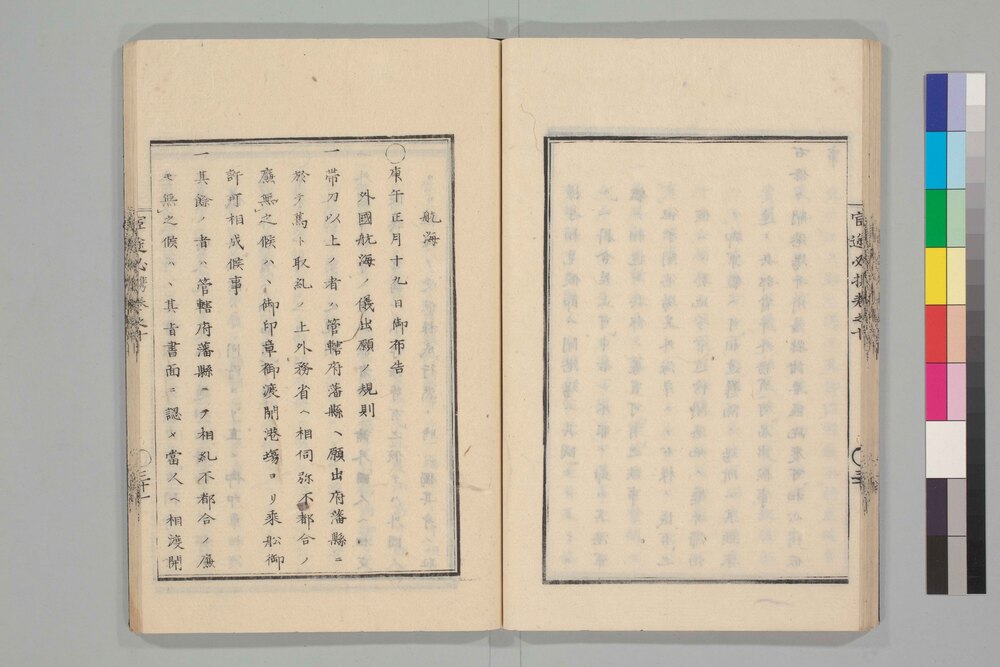 官途必携巻之十
航海
庚午正月十九日御布告
外國航海ノ儀出願ノ規則
一 帶刀以上ノ者ハ管轄府藩縣ヘ願出府藩縣ニ
於テ篤ト取糺ノ上外務省ヘ相伺弥不都合ノ
廉無之候ハヽ御印章御渡開港塲ヨリ乘船御
許可相成候事
一 其餘ノ者ハ管轄府藩縣ニテ相糺不都合ノ廉
モ無之候ハヽ其旨書面ニ認メ當人ヘ相渡開
官途必携巻之十
三十一